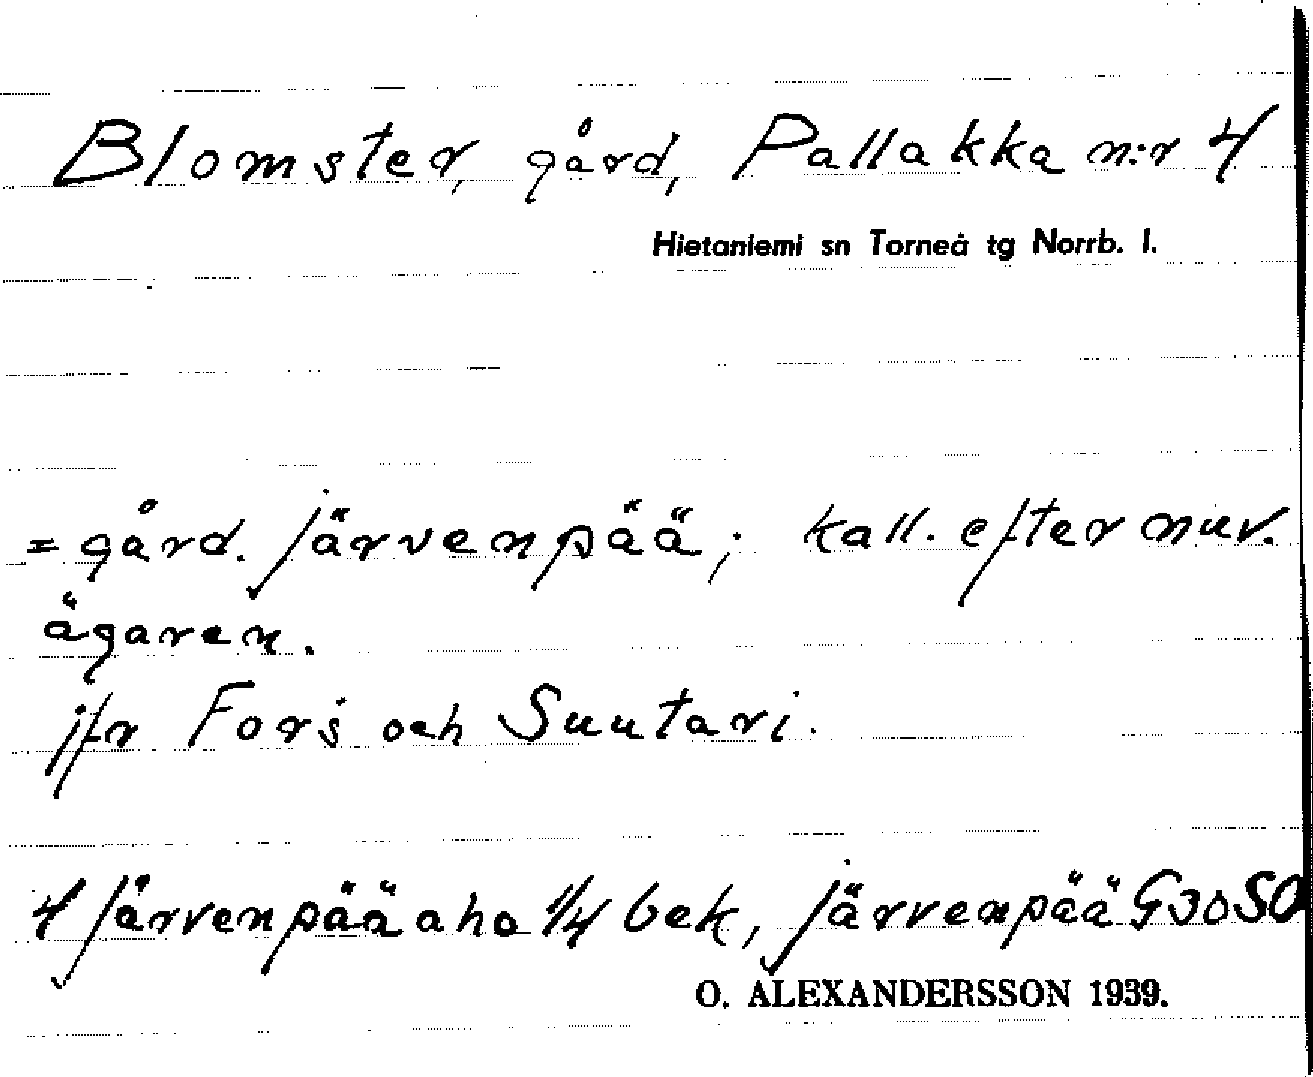 Blomster, gård, Pallakka n:r 4
Hietaniemi sn Torneå tg Norrb. l.
= gård. Järvenpää; kall. efter nuv.
ägaren.
jfr Fors och Suutari.
4 Järvenpääaho 1/4 bek, Järvenpää G30SO
O. ALEXANDERSSON 1939.